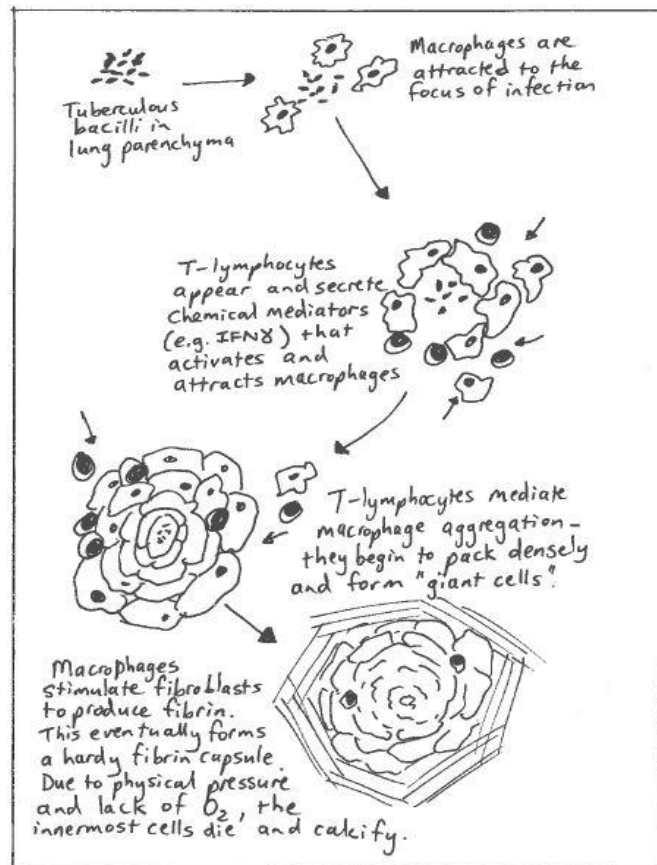 Tuberculous
bacilli in
lung parenchyma
Macrophages are
attracted to the
focus of infection
T-lymphocytes
appear and secrete
chemical mediators
(e.g. IFNγ) that
activates and
attracts macrophages
T-lymphocytes mediate
macrophage aggregation -
they begin to pack densely
and form "giant cells".
Macrophages
stimulate fibroblasts
to produce fibrin.
This eventually forms
a hardy fibrin capsule.
Due to physical pressure
and lack of O₂, the
innermost cells die and calcify.